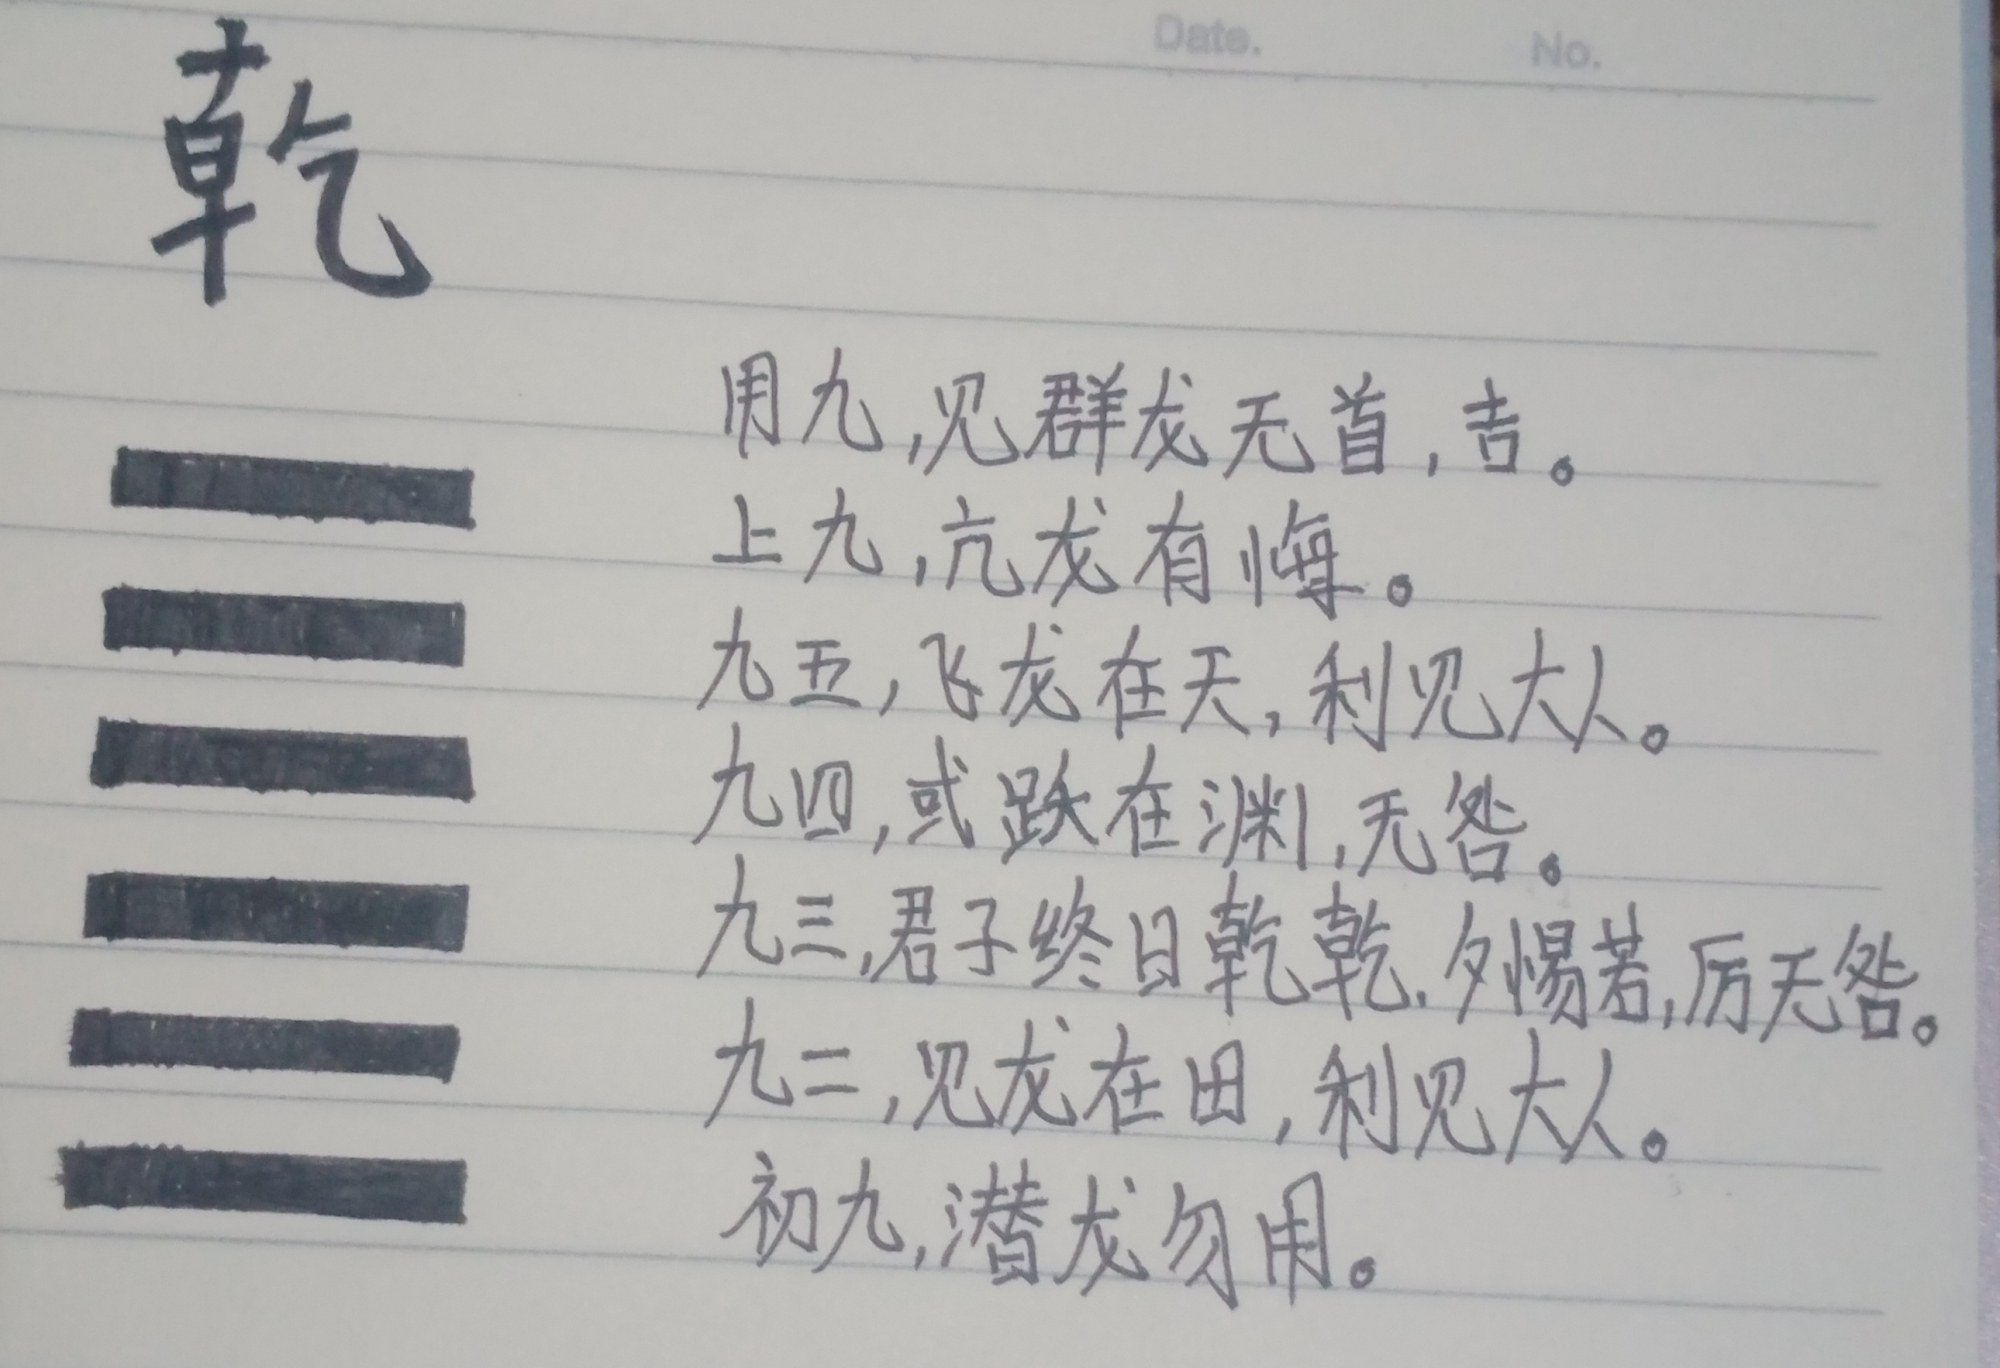 Date. No.
乾
用九，见群龙无首，吉。
上九，亢龙有悔。
九五，飞龙在天，利见大人。
九四，或跃在渊，无咎。
九三，君子终日乾乾，夕惕若，厉无咎。
九二，见龙在田，利见大人。
初九，潜龙勿用。